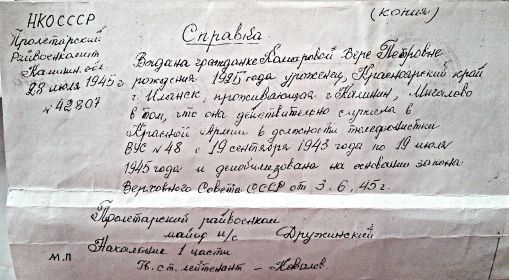 НКО СССР
(копия)
Пролетарский
Райвоенкомат
Калинин. обл.
28 июля 1945 г
№ 42807
Справка.
Выдана гражданке Комаровой Вере Петровне
рождения 1925 года уроженец, Красноярский край
г. Иланск, проживающая г. Калинин, Мигалово
в том, что она действительно служила в
Красной Армии в должности телефонистки
ВУС № 48 с 19 сентября 1943 года по 19 июля
1945 года и демобилизована на основании закона
Верховного Совета СССР от 3.6.45 г.
Пролетарский райвоенком
майор и/с Дружинский
Начальник 1 части
Гв. ст. лейтенант - Ковалев.
М.П